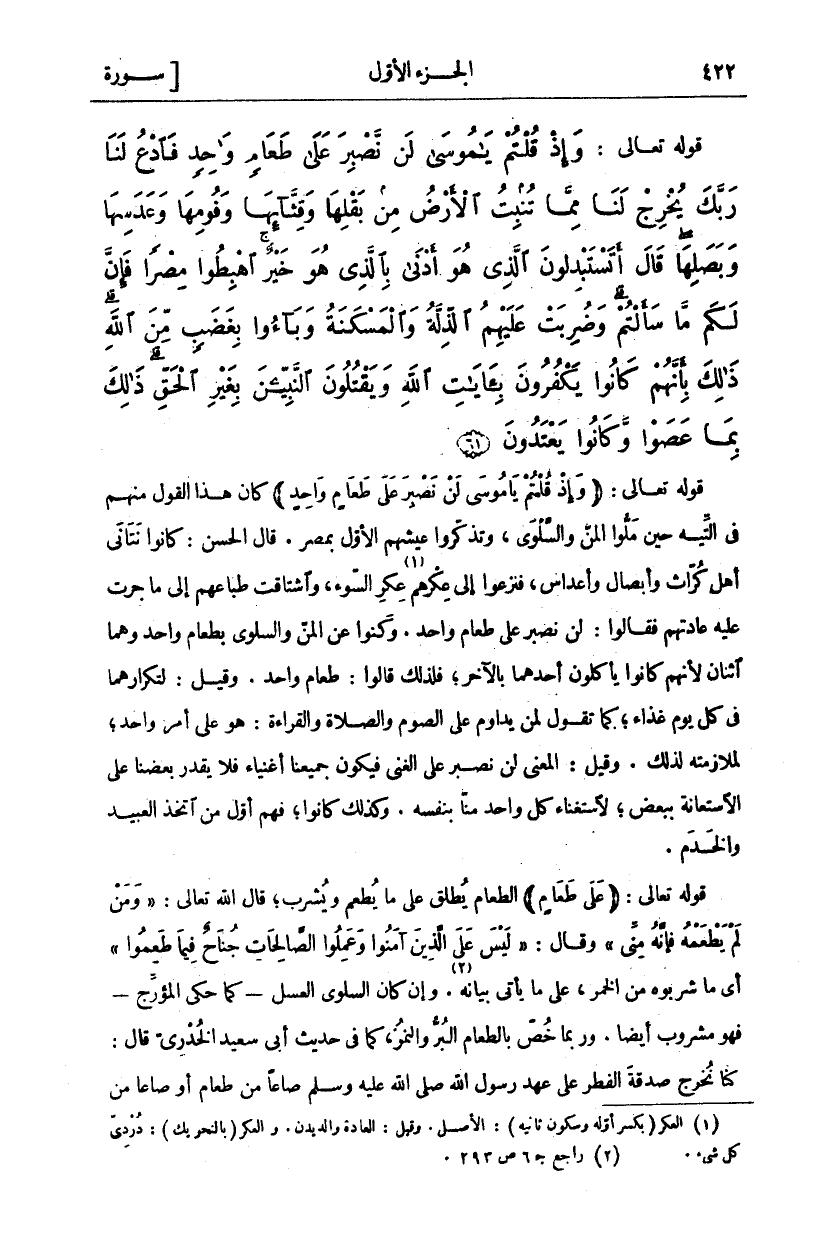 ٤٢٢ الجـزء الأوّل [ ســورة
قوله تعـالى : وَإِذْ قُلْتُمْ يَـٰمُوسَىٰ لَن نَّصْبِرَ عَلَىٰ طَعَامٍ وَٰحِدٍ فَٱدْعُ لَنَا
رَبَّكَ يُخْرِجْ لَنَـا مِمَّا تُنۢبِتُ ٱلْأَرْضُ مِنۢ بَقْلِهَا وَقِثَّآئِهَـا وَفُومِهَا وَعَدَسِهَا
وَبَصَلِهَاۖ قَالَ أَتَسْتَبْدِلُونَ ٱلَّذِى هُوَ أَدْنَىٰ بِٱلَّذِى هُوَ خَيْرٌۚ ٱهْبِطُوا مِصْرًا فَإِنَّ
لَـكُم مَّا سَأَلْتُمْۗ وَضُرِبَتْ عَلَيْهِمُ ٱلذِّلَّةُ وَٱلْمَسْكَنَةُ وَبَـآءُوا بِغَضَبٍ مِّنَ ٱللَّهِۗ
ذَٰلِكَ بِأَنَّهُمْ كَانُوا يَكْفُرُونَ بِـَٔايَـٰتِ ٱللَّهِ وَيَقْتُلُونَ ٱلنَّبِيِّـۧنَ بِغَيْرِ ٱلْحَقِّۗ ذَٰلِكَ
بِمَـا عَصَوْا وَّكَانُوا يَعْتَدُونَ ﴿٦١﴾
قوله تعـالى : ﴿ وَإِذْ قُلْتُمْ يَامُوسَى لَنْ نَصْبِرَ عَلَى طَعَامٍ وَاحِدٍ ﴾ كان هـذا القول منهـم
فى التِّيـه حين مَلُّوا المنّ والسَّلْوَى ، وتذكّروا عيشهم الأوّل بمصر . قال الحسن : كانوا نَتَانَى
أهل كُرّاث وأبصال وأعداس، فنزعوا إلى عِكْرهم (١) عِكر السّوء، وٱشتاقت طباعهم إلى ما جرت
عليه عادتهم فقـالوا : لن نصبر على طعام واحد . وكنوا عن المنّ والسلوى بطعام واحد وهما
ٱثنان لأنهم كانوا يأكلون أحدهما بالآخر؛ فلذلك قالوا : طعام واحد . وقيـل : لتكرارهما
فى كل يوم غذاء ؛ كما تقـول لمن يداوم على الصوم والصـلاة والقراءة : هو على أمر واحد؛
لملازمته لذلك . وقيل : المعنى لن نصـبر على الغنى فيكون جميعنا أغنياء فلا يقدر بعضنا على
الٱستعانة ببعض ؛ لٱستغناء كل واحد منّا بنفسه . وكذلك كانوا؛ فهم أوّل من ٱتخذ العبيـد
والخَـدَم .
قوله تعالى : ﴿ عَلَى طَعَامٍ ﴾ الطعام يُطلق على ما يُطعم ويُشرب؛ قال الله تعالى : « وَمَنْ
لَمْ يَطْعَمْهُ فَإِنَّهُ مِنِّى » وقـال : « لَيْسَ عَلَى الَّذِينَ آمَنُوا وَعَمِلُوا الصَّالِحَاتِ جُنَاحٌ فِيمَا طَعِمُوا »
أى ما شربوه من الخمر ، على ما يأتى بيانه (٢) . وإن كان السلوى العسل — كما حكى المؤرِّج —
فهو مشروب أيضا . وربما خُصّ بالطعام البُرّ والتمر، كما فى حديث أبى سعيد الخُدْرِىّ قال :
كنّا نُخرج صدقةَ الفطر على عهد رسول الله صلى الله عليه وسـلم صاعاً من طعام أو صاعا من
(١) العكر (بكسر أوّله وسكون ثانيه) : الأصـل . وقيل : العادة والديدن . و العكر (بالتحريك) : دُرْدِىّ
كل شىء . (٢) راجع جـ ٦ ص ٢٩٣ .